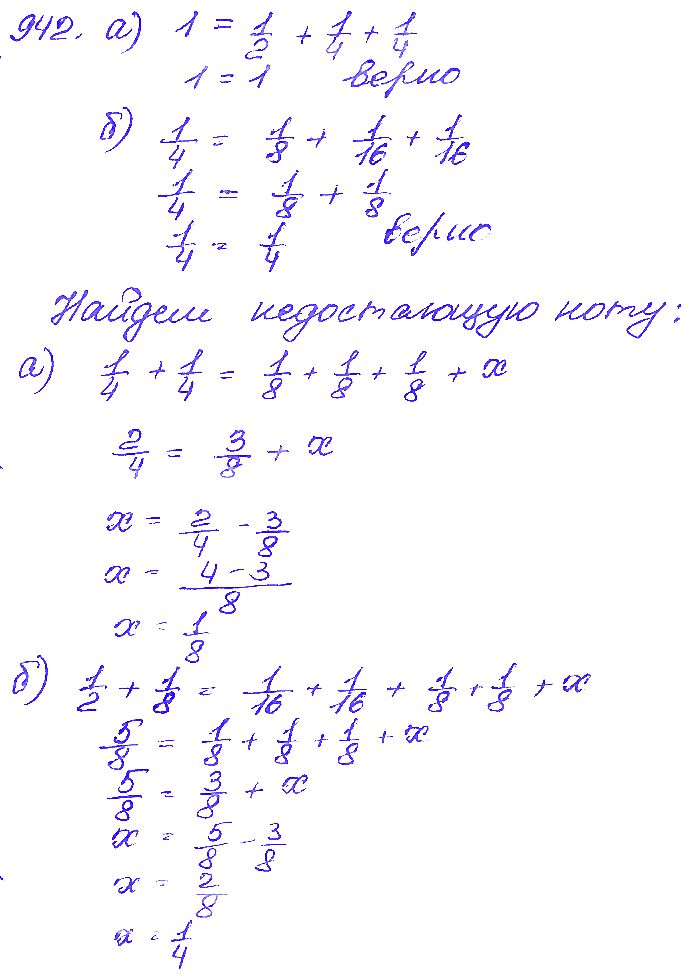 942. а) 1 = 1/2 + 1/4 + 1/4
1 = 1 верно
б) 1/4 = 1/8 + 1/16 + 1/16
1/4 = 1/8 + 1/8
1/4 = 1/4 верно
Найдем недостающую ноту:
а) 1/4 + 1/4 = 1/8 + 1/8 + 1/8 + x
2/4 = 3/8 + x
x = 2/4 - 3/8
x = (4 - 3)/8
x = 1/8
б) 1/2 + 1/8 = 1/16 + 1/16 + 1/8 + 1/8 + x
5/8 = 1/8 + 1/8 + 1/8 + x
5/8 = 3/8 + x
x = 5/8 - 3/8
x = 2/8
x = 1/4